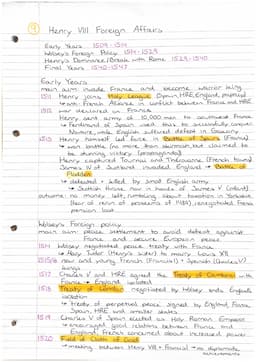 Henry VIII Foreign Affairs
Early Years 1509-1514
Wolsey's Foreign Policy 1514-1529
Henry's Dominance/Break with Rome 1529-1540
Final Years 1540-1547
Early Years
main aim: invade France and become warrior king
1511 Henry joins Holy League (Spain, HRE, England, papacy)
↳ anti-French Alliance in conflict between France and HRE
1512 war declared on France
Henry sent army of 10,000 men to southwest France
↳ Ferdinand of Spain used this to successfully conquer
Navarre, while English suffered defeat in Gascony
1513 Henry himself led force in Battle of Spurs (France)
↳ won battle (no more than skirmish but claimed to
be stunning victory) (propaganda)
Henry captured Tournai and Thérouanne (French towns)
James IV of Scotland invaded England → Battle of
Flodden
↳ defeated + killed by small English army
↳ Scottish throne now in hands of James V (infant)
outcome: no money left, rumblings about taxation in Yorkshire
(fear of rerun of rebellions of 1489), renegotiated French
pension lost
Wolsey's Foreign policy
main aim: peace settlement to avoid defeat against
France and secure European peace
1514 Wolsey negotiated peace treaty with France
↳ Mary Tudor (Henry's sister) to marry Louis XII
1515/16 new and young French (Francis I) + Spanish (Charles V)
kings
1517 Charles V and HRE agreed the Treaty of Cambrai with
France → England isolated
1518 Treaty of London negotiated by Wolsey ends England's
isolation
↳ treaty of perpetual peace signed by England, France,
Spain, HRE and smaller states
1519 Charles V of Spain elected as Holy Roman Emperor
↳ encouraged good relations between France and
England, French concerned about increased power
1520 Field of Cloth of Gold
↳ meeting between Henry VIII + Francis I → no diplomatic
achievements